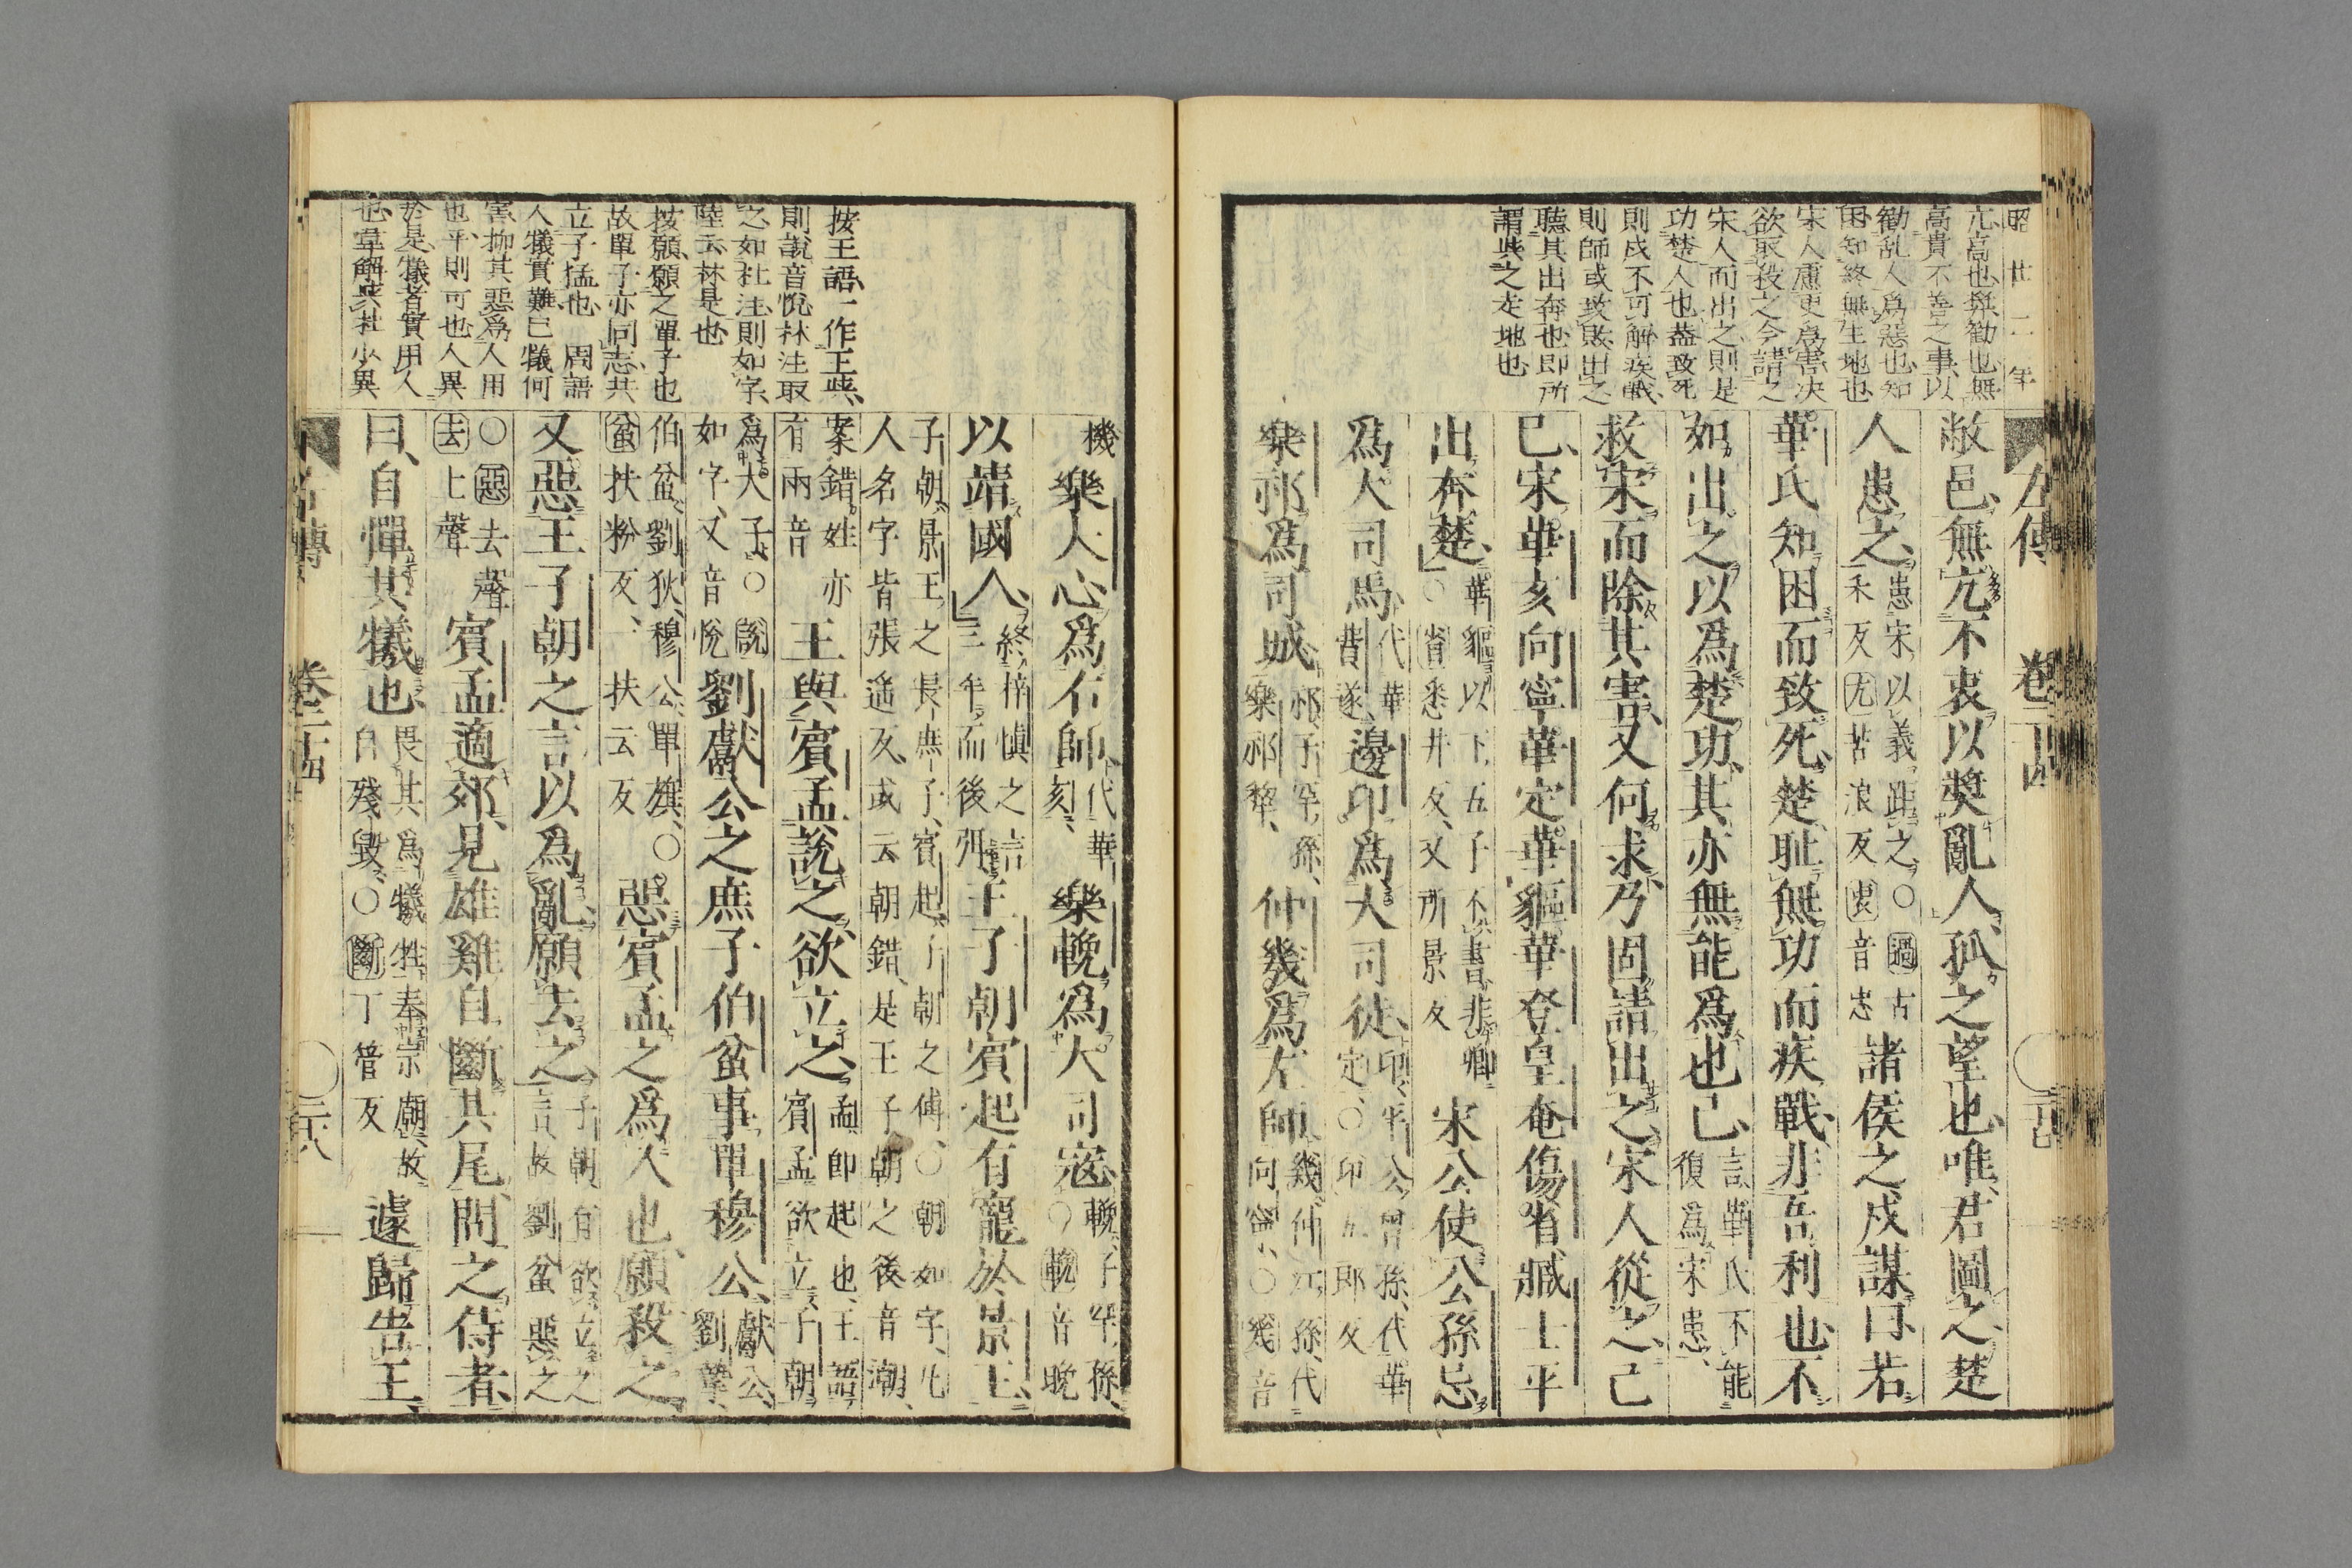 昭廿二年
亢高也無勸也無
高貴不善之事以
勸乱人爲惡也知
困知終無生地也
宋人慮更爲害决
欲取殺之今請之
宋人而出之則是
功楚人也蓋致死
則戌不可解疾戰
則師或致敗出之
聽其出奔也即所
謂此之走地也
左傳 卷二十四
敝邑、無亢不衷、以奬亂人、孤之望也、唯君圖之、楚
人患之、患宋以義距之、○過古禾反亢苦浪反衷音忠 諸侯之戍謀曰、若
華氏知困而致死、楚恥無功而疾戰、非吾利也、不
如出之、以爲楚功、其亦無能爲也已、言華氏不能復爲宋患、
救宋而除其害、又何求、乃固請出之、宋人從之、己
巳、宋華亥向寧華定華貙華登皇奄傷省臧士平
出奔楚、華貙以下五子不書、非卿○省悉井反、又所景反 宋公使公孫忌
爲大司馬、代華費遂、邊卬爲大司徒、卬、平公曾孫、代華定、○卬五郎反
樂祁爲司城、祁、子罕孫、樂祁犂、 仲幾爲左師、幾、仲江孫、代向寧、○幾音
機 樂大心爲右師、代華亥、 樂輓爲大司寇、輓、子罕孫、○輓音晚
以靖國人、終梓愼之言三年而後弭 王子朝賓起有寵於景王、
子朝、景王之長庶子、賓起、子朝之傅、○朝如字、凡人名字皆張遙反、或云朝錯、是王子朝之後音潮、
案錯姓亦有兩音 王與賓孟說之、欲立之、孟即起也、王語賓孟欲立子朝
爲大子、○說如字、又音悅 劉獻公之庶子伯蚠事單穆公、獻公、劉摯、
伯蚠、劉狄、穆公、單旗、○蚠扶粉反、一扶云反 惡賓孟之爲人也、願殺之、
又惡王子朝之言以爲亂、願去之、子朝有欲立之言、故劉蚠惡之
○惡去聲去上聲 賓孟適郊、見雄雞自斷其尾、問之、侍者
曰、自憚其犧也、畏其爲犧牲、奉宗廟、故自殘毀、○斷丁管反 遽歸告王、
按王語、一作王此、
則說音悅林注取
之如杜注則如字、
陸云林是也
按願願之單子也
故單子亦同志共
立子猛也 周語
人犧實難己犧何
害抑其惡爲人用
也乎、則可也人異
於是、犧者實用人
也韋解與杜少異
左傳 卷二十四 二十八